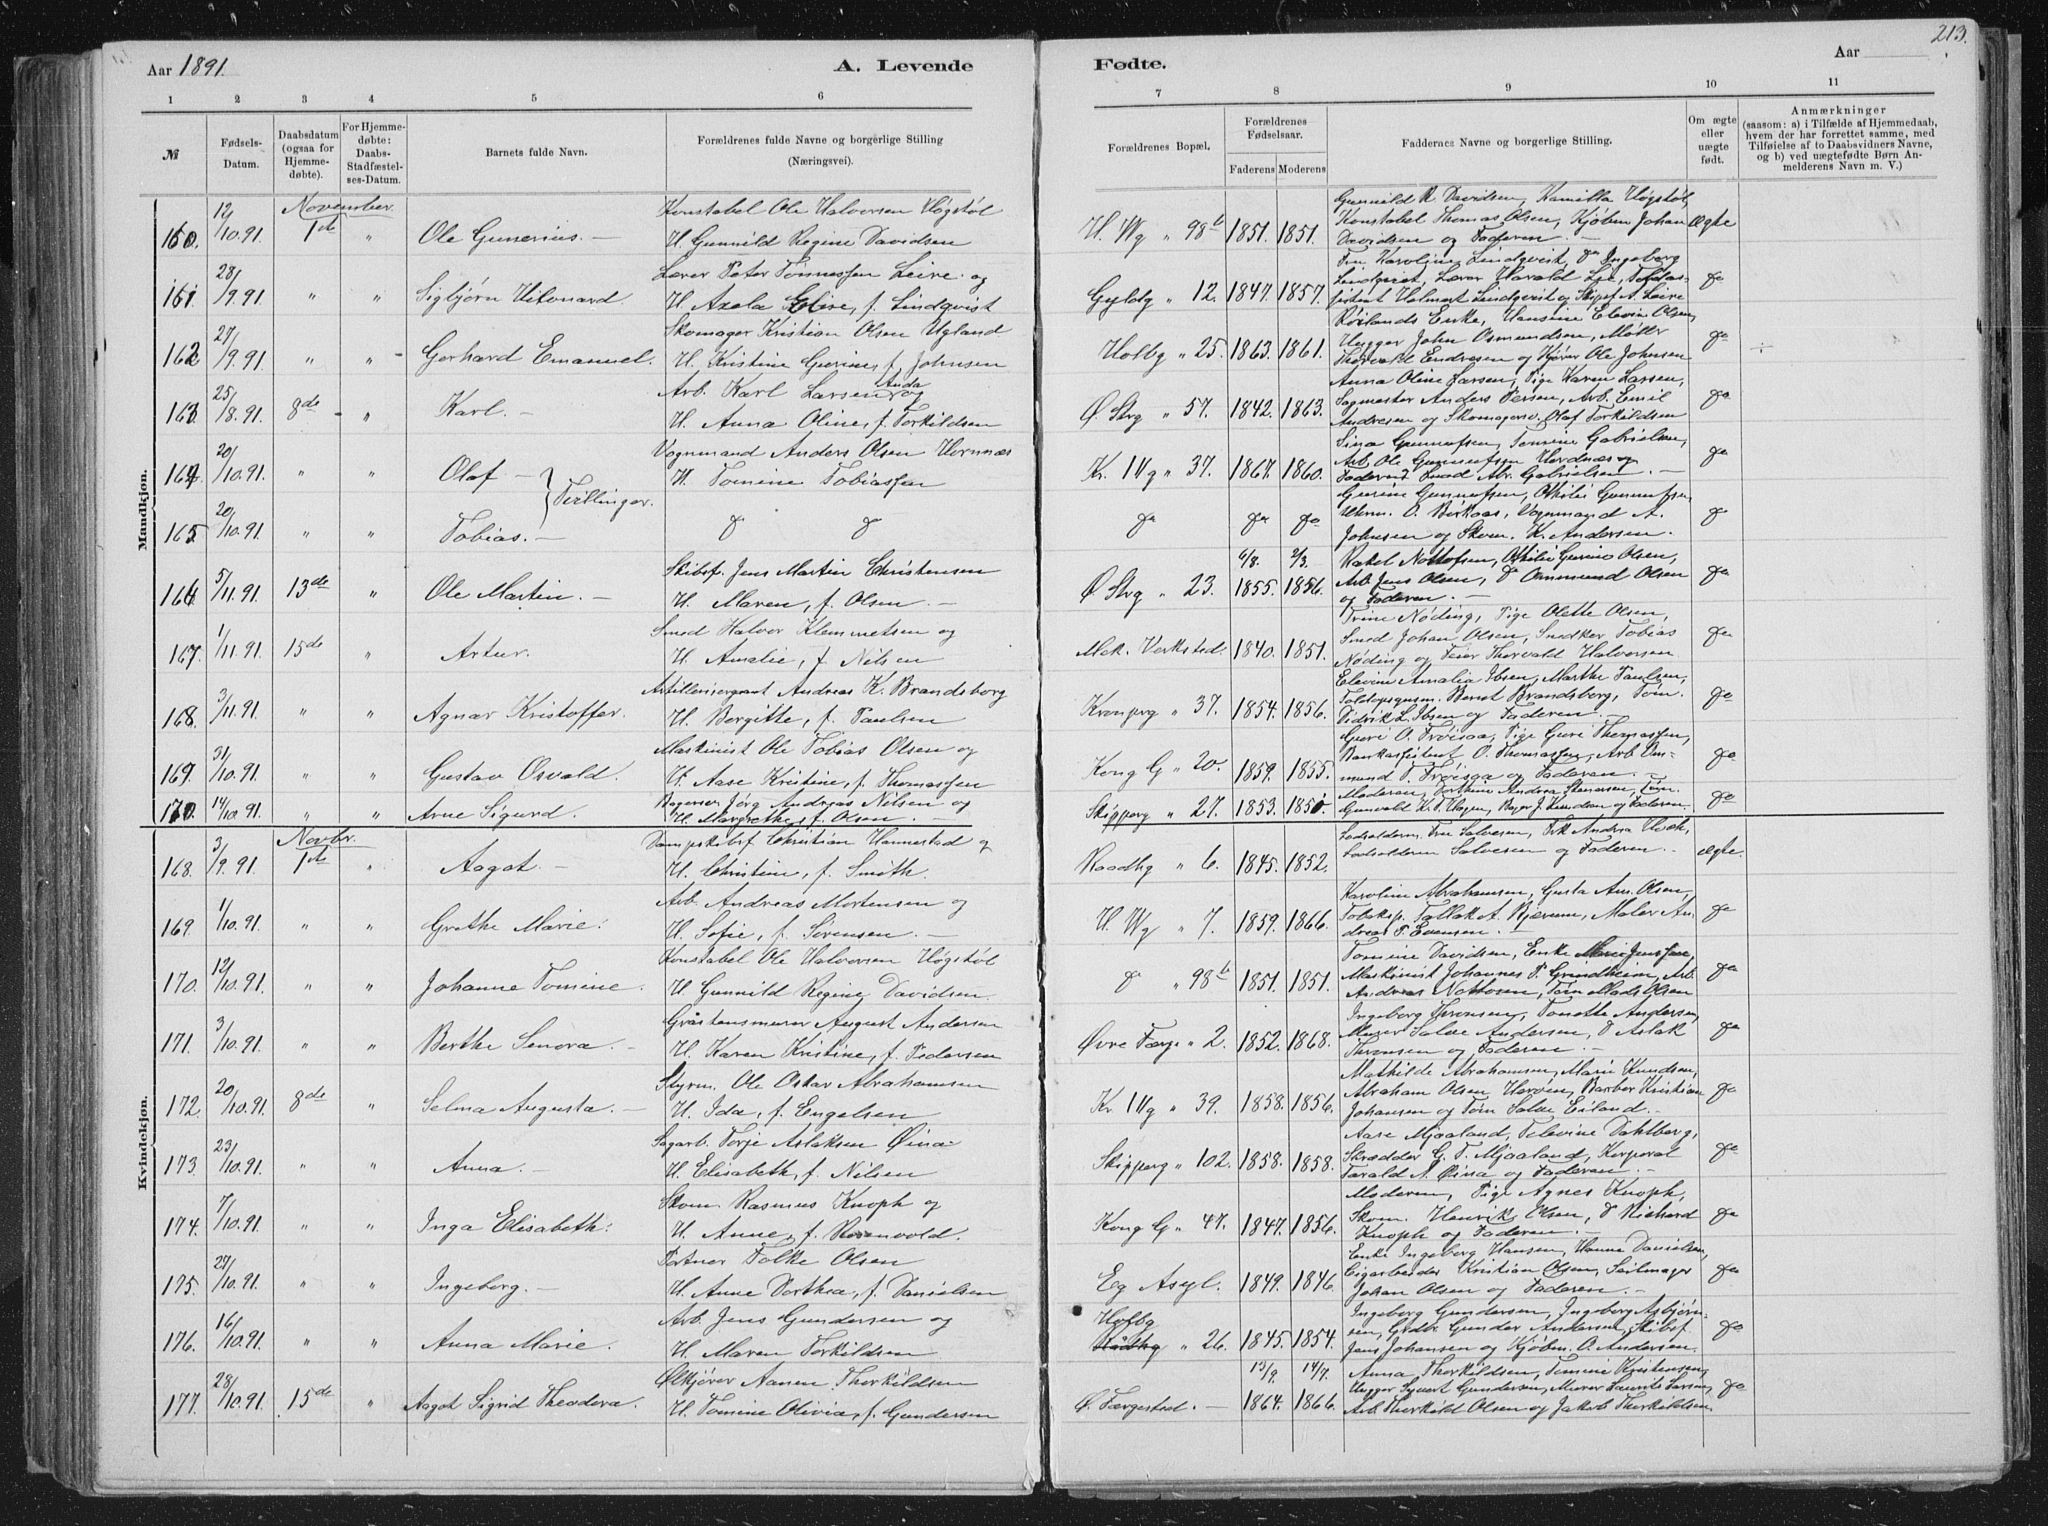 213.
Aar 1891.
A. Levende
Fødte.
Aar
1 2 3 4 5 6 7 8 9 10 11
№
Fødsels-Datum.
Daabsdatum (ogsaa for Hjemmedøbte).
For Hjemmedøbte: Daabs-Stadfæstelses-Datum.
Barnets fulde Navn.
Forældrenes fulde Navne og borgerlige Stilling (Næringsvei).
Forældrenes Bopæl.
Forældrenes Fødselsaar.
Faderens Moderens
Faddernes Navne og borgerlige Stilling.
Om ægte eller uægte født.
Anmærkninger
(saasom: a) i Tilfælde af Hjemmedaab, hvem der har forrettet samme, med Tilføielse af to Daabsvidners Navne, og b) ved uægtefødte Børn Anmelderens Navn m. V.)
Mandkjøn.
November
160. 12/10.91. 1ste " Ole Gunerius. — Konstabel Ole Halvorsen Høgstøl H. Gunnild Regine Davidsen H. Vg " 98b 1851. 1851. Gunnild R. Davidsen, Kamilla Høgstøl, Konstabel Thomas Olsen, Kjøbm Johan Davidsen og Faderen. — ægte
161. 28/9.91. " " Sigbjørn Lærer Peter Tønnessen Leire og H. Axela Elise, f. Lindqvist Gyldg " 12. 1847. 1857. Fru Karoline Lindqvist, do Ingeborg Lindqvist, Lærer Harald Lie, Toldassistent Halmart Lindqvist og Skipsf. A. Leire do
162 27/9.91. " " Gerhard Emanuel. Skomager Kristian Olsen Ugland H. Kristine Gurine, f. Johnsen Holbg " 25. 1863. 1861. Røilands Enke, Hansine Elevin Olsen, Hugger John Osmundsen, Møller Thorvald Endresen og Kjører Ole Johnsen do ÷
163 25/8.91. 8de " Karl. — Arb. Karl Larsen Anda og H. Anna Oline, f. Torkildsen Ø. Strg " 57. 1842. 1863. Anna Oline Larsen, Pige Karen Larsen, Sagmester Anders Tersen, Arb. Emil Andresen og Skomagersv. Olaf Torkildsen do
164. 20/10.91. " " Olaf — Vognmand Anders Olsen Hornnæs H. Tomine Tobiassen Kr. IVg " 37. 1867. 1860. Sina Gunnufsen, Tomine Gabrielsen, Arb. Ole Gunnufsen Hordnæs og Abr. Gabrielsen. — do
Tvillinger.
165 20/10.91. " " Tobias. — do do do do do Gurine Gunnufsen, Othilie Gunnufsen, Uhrm. O. Birkaas, Vognmand A. Johnsen og Skom. K. Andersen. do
166 5/11.91. 13de " Ole Martin. — Skibsf. Jens Martin Christensen H. Maren, f. Olsen. — Ø Strg " 23. 6/8. 1855. 2/3. 1856. Rakel Nottofsen, Othilie Gurine Olsen, Arb. Jens Olsen, do Ommund Olsen og Faderen. — do
167. 1/11.91. 15de " Artur. Smed Halvor Klemmetsen og H. Amalie, f. Nilsen Mek. Verksted. 1840. 1851. Trine Nøding, Pige Olette Olsen, Smed Johan Olsen, Snedker Tobias Nøding og Feier Thorvald Halvorsen do
168. 3/11.91. " " Agnar Kristoffer. Artillerisergeant Andreas K. Brandsborg H. Bergitte, f. Paulsen Kronprg " 37. 1854. 1856. Elevine Amalia Ibsen, Marthe Paulsen, Bernt Brandsborg, Tøm. Didrik L. Ibsen og Faderen. — do
169. 31/10.91. " " Gustav Osvald. Maskinist Ole Tobias Olsen og H. Aase Kristine, f. Thomassen Kong G " 20. 1859. 1855. Guri O. Frøisaa, Pige Guri Thomassen, Bankassistent O. Thomassen, Arb Ommund T. Frøisaa og Faderen. — do
170. 14/10.91. " " Arne Sigurd. Bagersv. Jörg. Andreas Nilsen og H. Margrethe, f. Olsen. — Skipperg " 27. 1853. 1850. Moderen, Gunvald K. T. Hagen, Bager J. Knudsen og Faderen. do
Kvindekjøn.
Novbr.
168. 3/9.91. 1ste " Aagot. — Dampskibsf Christian Hannestad og H. Christine, f. Smith. Raadhg " 6. 1845. 1852. Lodsolderm. Fru Salvesen, Frk Andrea Lodsolderm Salvesen og Faderen. — ægte.
169. 1/10.91. " " Grethe Marie. Arb. Andreas Mortensen og H. Sofie, f. Sørensen. — H. Vg " 7. 1859. 1866. Karoline Abrahamsen, Gusta Am. Olsen, Tallak A. Bjerum, Maler Andreas T. Evensen. — do
170. 12/10.91. " " Johanne Tomine. Konstabel Ole Halvorsen Høgstøl H. Gunnild Regine Davidsen. do " 98b 1851. 1851. Tomine Davidsen, Enke Marie Jensen, Maskinist Johannes T. Grundheim, Arb. Andreas Nottosen, Tøm Mads Olsen do
171. 3/10.91. " " Berthe Senora. — Gråstensmurer August Andersen H. Karen Kristine, f. Pedersen Øvre Færge " 2. 1852. 1868. Ingeborg Jeronsen, Tonette Andersen, Murer Salve Andersen, do Aslak Thronsen og Faderen. — do
172. 20/10.91. 8de " Selma Augusta. — Styrm. Ole Oskar Abrahamsen H. Ida, f. Engelsen Kr. IVg " 39. 1858. 1856. Mathilde Abrahamsen, Marie Knudsen, Abraham Olsen Barber Kristian Johansen og Tøm Salve Eiland. — do
173. 23/10.91. " " Anna. — Sagarb. Torje Aslaksen Øina H. Elisabeth, f. Nilsen Skipperg " 102. 1858. 1858. Aase Mjaaland, Televine Dahlberg, Skrædder G. T. Mjaaland, Korporal Tarald N. Øina og Faderen. — do
174. 7/10.91. " " Inga Elisabeth. Skom. Rasmus Knoph og H. Anne, f. Rosenvold. Kong G " 47. 1847. 1856. Moderen, Pige Agnes Knoph, Skom. Henrik Olsen, do Richard Knoph og Faderen. — do
175. 29/10.91. " " Ingeborg. — Portner Folke Olsen H. Anne Dorthea, f. Danielsen Eg Asyl. 1849. 1846. Enke Ingeborg Hansen, Hanne Danielsen, Cigarbeider Kristian Olsen, Seilmager Johan Olsen og Faderen. — do
176. 16/10.91. " " Anna Marie. Arb. Jens Gundersen og H. Maren Torkildsen Holbg " 26. 1845. 1854. Ingeborg Gundersen, Ingeborg Asbjørnsen, Grdbr. Gunder Andersen, Skibsf. Jens Johansen og Kjøbm. O. Andersen. do
177. 28/10.91. 15de " Aagot Sigrid Theodora. Ølkjører Aanen Thorkildsen H. Tomine Olivia, f. Gundersen Ø. Færgested. — 13/9 1864. 14/9. 1866. Anna Thorkildsen, Tomine Kristensen, Hugger Syvert Gundersen, Murer Laurits Larsen, Arb Thorkild Olsen og Jakob Thorkildsen. do